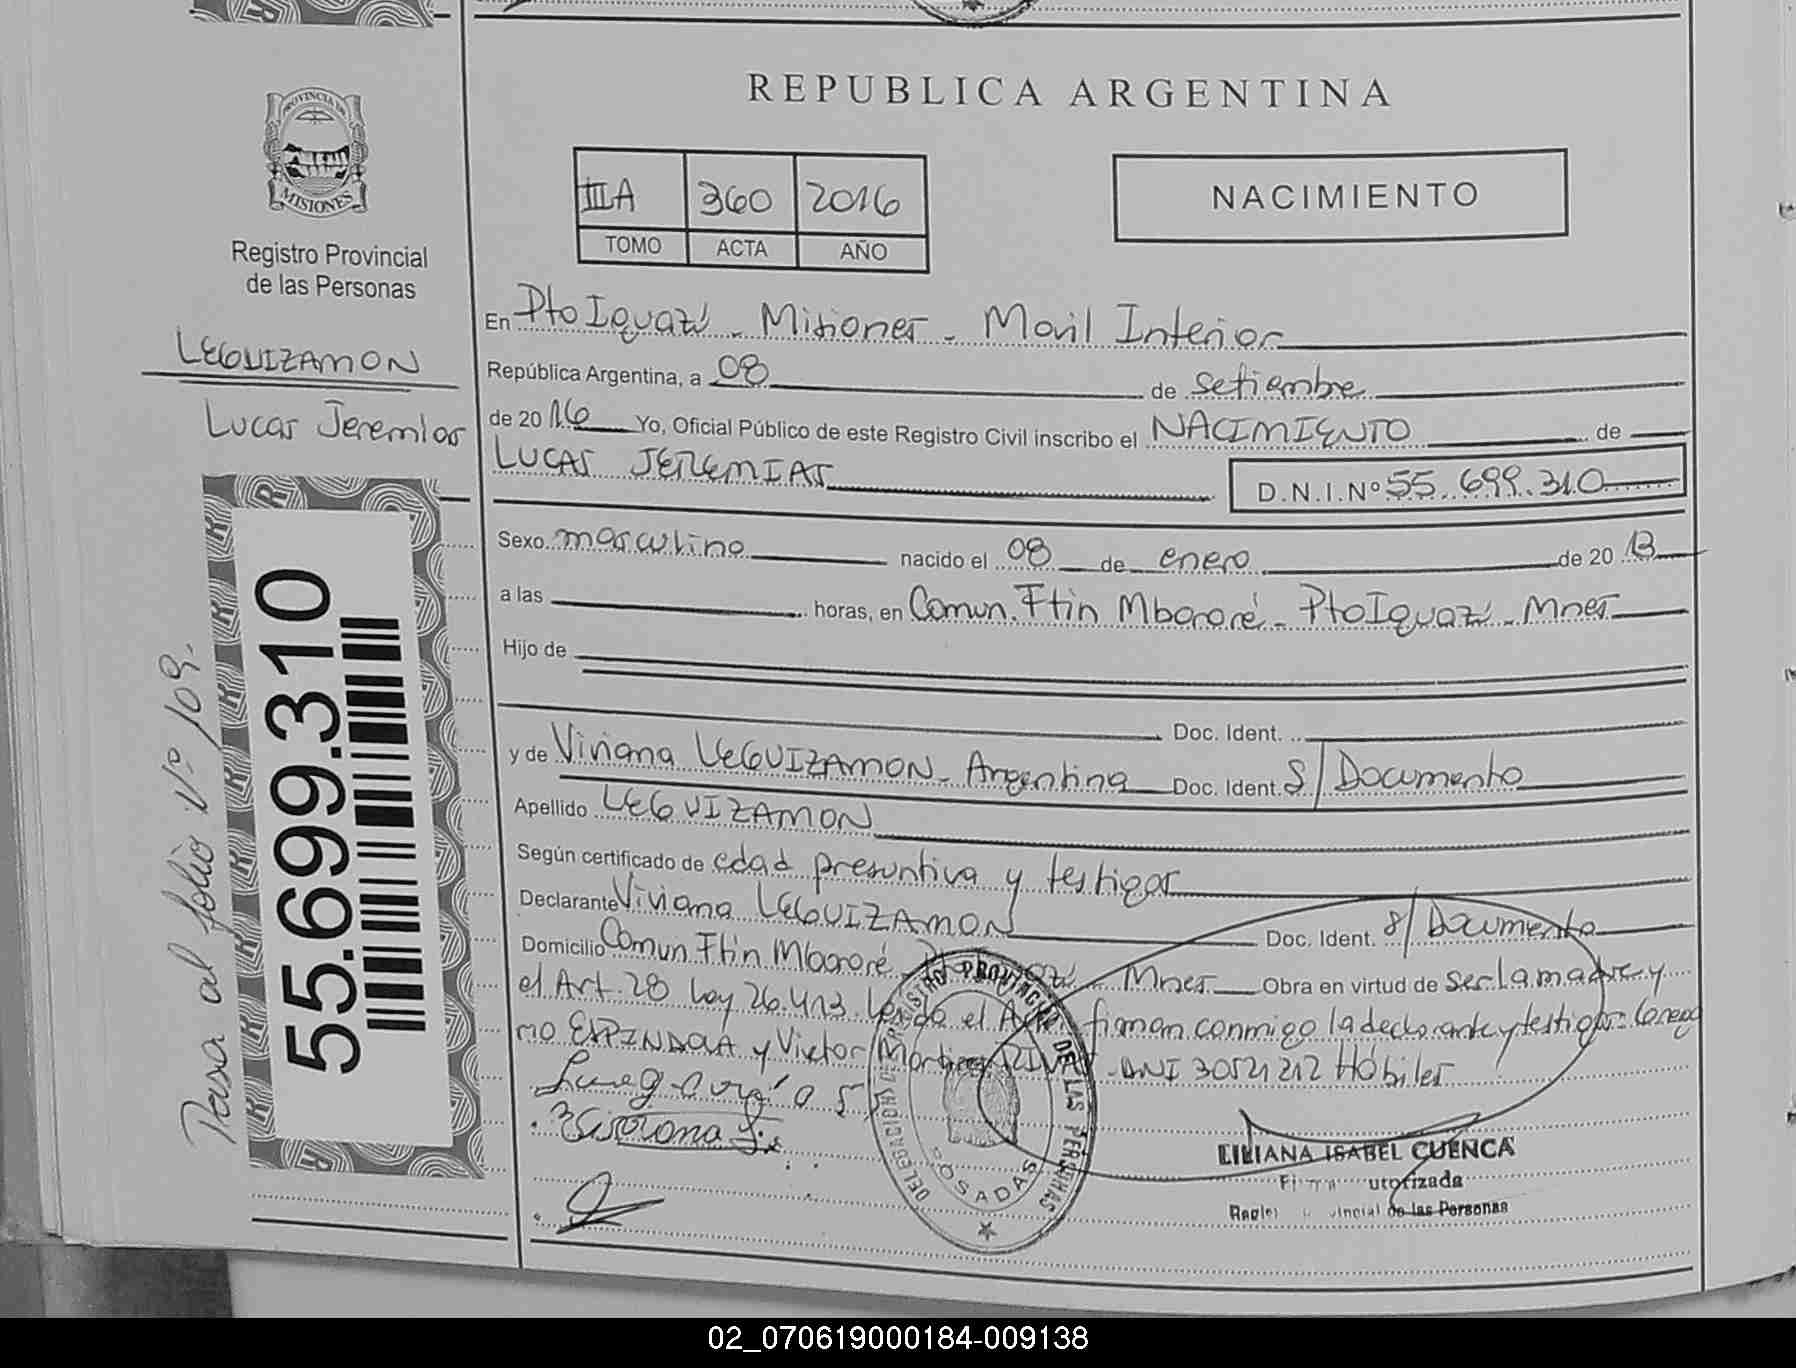 REPUBLICA ARGENTINA
PROVINCIA DE
MISIONES
Registro Provincial
de las Personas
IIIA 360 2016
TOMO ACTA AÑO
NACIMIENTO
LEGUIZAMON
Lucas Jeremias
55.699.310
Pasa al folio Nº 109.
En Pto Iguazú - Misiones - Movil Interior
República Argentina, a 08 de setiembre
de 2016 Yo, Oficial Público de este Registro Civil inscribo el NACIMIENTO de
LUCAS JEREMIAS
D.N.I.Nº 55.699.310
Sexo masculino nacido el 08 de enero de 2013
a las horas, en Comun. Ftin Mbororé - Pto Iguazú - Mnes
Hijo de
Doc. Ident.
y de Viviana LEGUIZAMON - Argentina Doc. Ident. S/Documento
Apellido LEGUIZAMON
Según certificado de edad presuntiva y testigos
Declarante Viviana LEGUIZAMON Doc. Ident. S/Documento
Domicilio Comun Ftin Mbororé - Mnes Obra en virtud de ser la madre y
el Art. 28 Ley 26.413. Leida el Acta firman conmigo la declarante y testigos:
ESPINDOLA y Victor DNI 30521212 Hábiles
REGISTRO PROVINCIAL DE LAS PERSONAS
DELEGACION
POSADAS
LILIANA ISABEL CUENCA
utorizada
vincial de las Personas
02_070619000184-009138